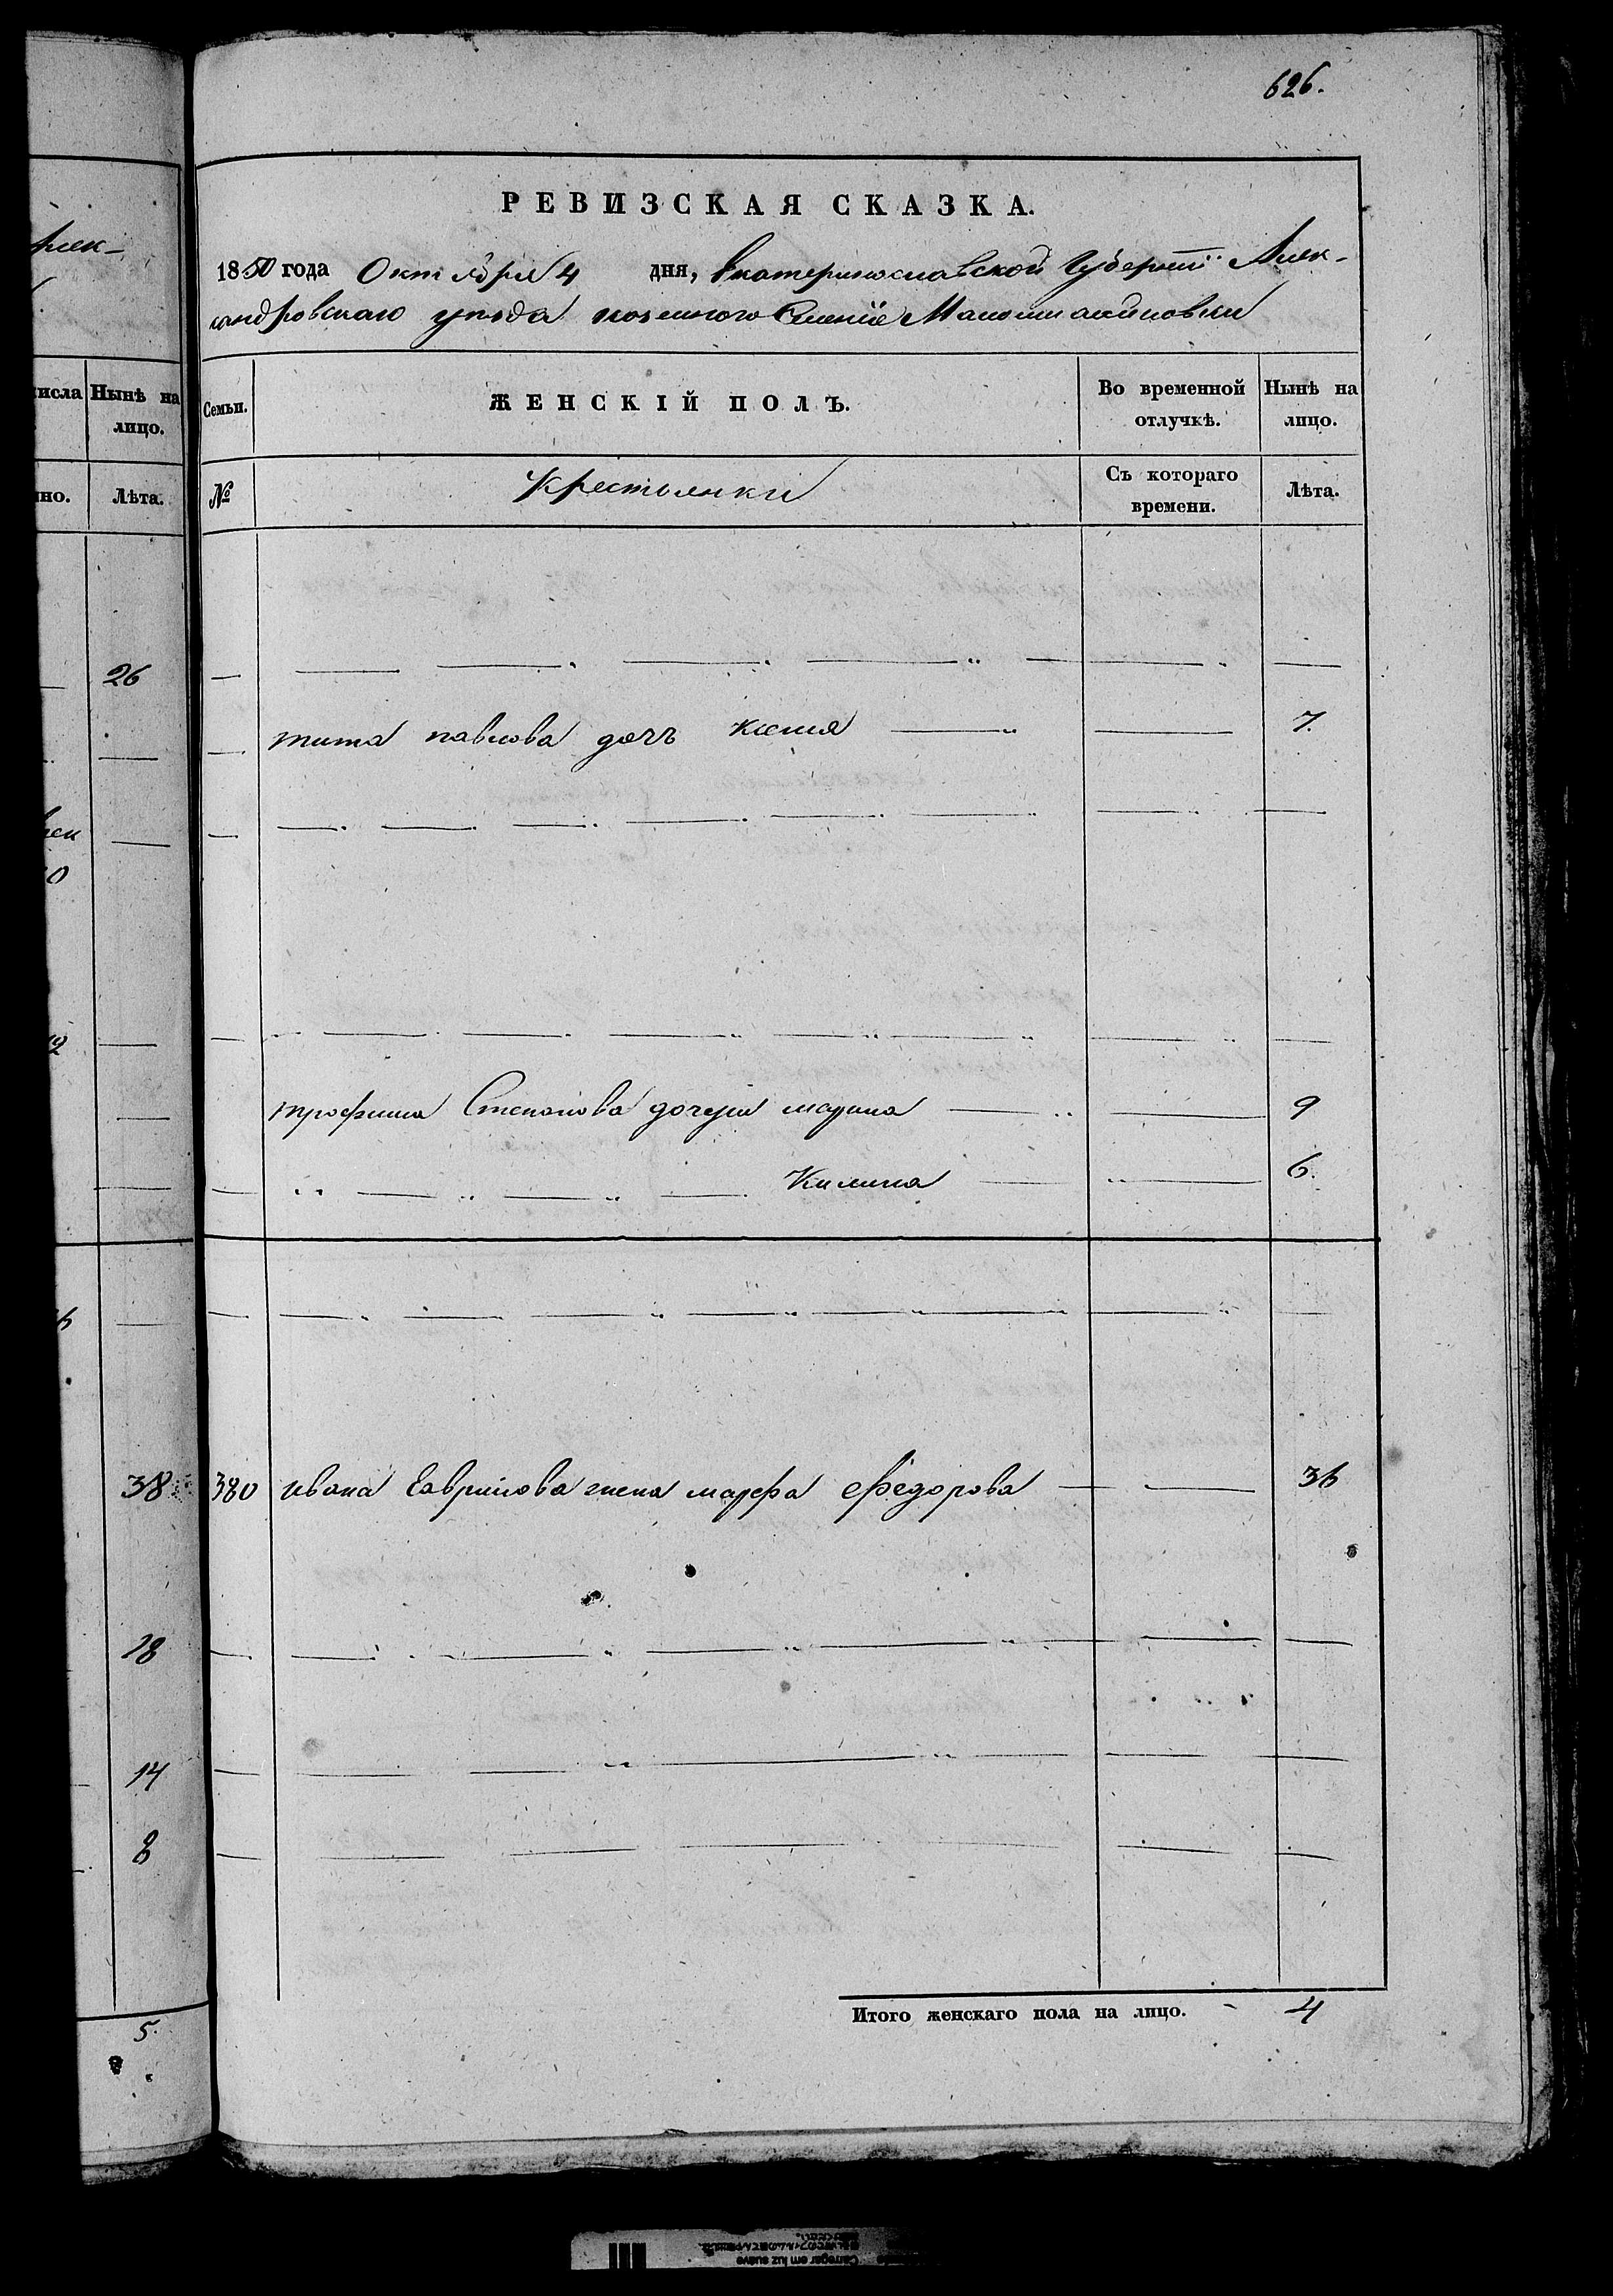 626.
РЕВИЗСКАЯ СКАЗКА.
1850 года Октября 4 дня, Екатеринославской Губернии Алек-
сандровскаго уезда казенного Селения
Семьи.
ЖЕНСКІЙ ПОЛЪ.
Во временной отлучкѣ.
Нынѣ на лицо.
№
Крестьянки
Съ котораго времени.
Лѣта.
тита павлова дочь ксения 7.
трофима Степанова дочери марина 9
Килина 6.
380 ивана Гаврилова жена марфа Федорова 36
Итого женскаго пола на лицо. - 4
Алек-
числа
Нынѣ на
лицо.
но.
Лѣта.
26
38
18
14
8
5.